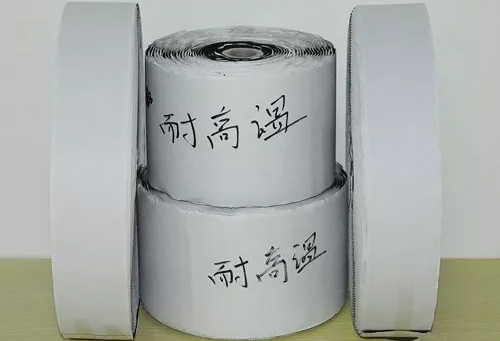 耐高温
耐高温